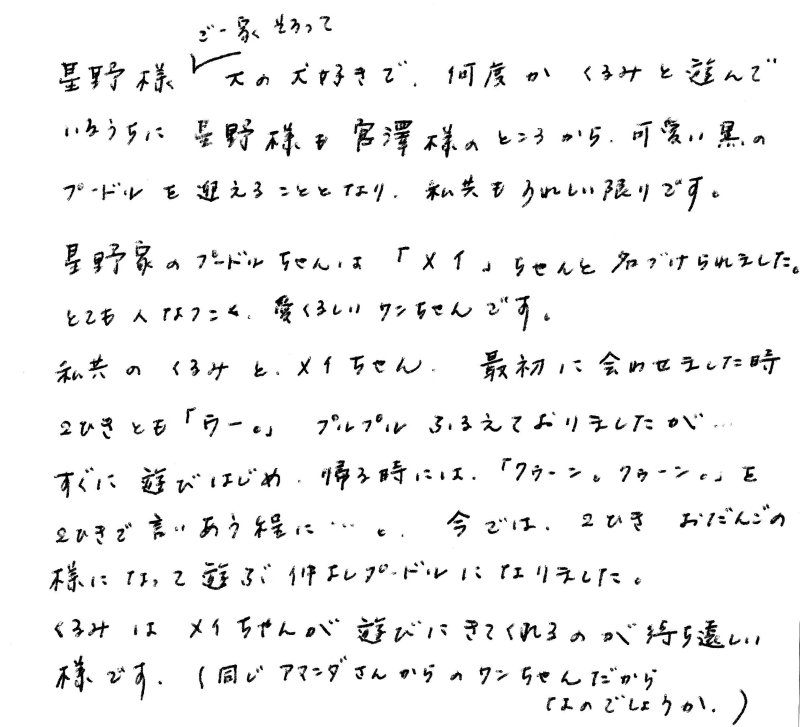 ご一家そろって
星野様 大の犬好きで、何度か くるみと遊んで
いるうちに 星野様も宮澤様のところから、可愛い黒の
プードルを迎えることとなり、私共もうれしい限りです。
星野家のプードルちゃんは「メイ」ちゃんと名づけられました。
とても人なつこく、愛くるしいワンちゃんです。
私共の くるみと、メイちゃん、 最初に会わせました時
2ひきとも「ウー。」 プルプル ふるえておりましたが…
すぐに 遊びはじめ、帰る時には、「クゥーン。クゥーン。」を
2ひきで言いあう程に…と、今では、2ひき おだんごの
様になって遊ぶ仲よしプードルになりました。
くるみは メイちゃんが 遊びにきてくれるのが待ち遠しい
様です。(同じアマンダさんからのワンちゃんだから
なのでしょうか。)